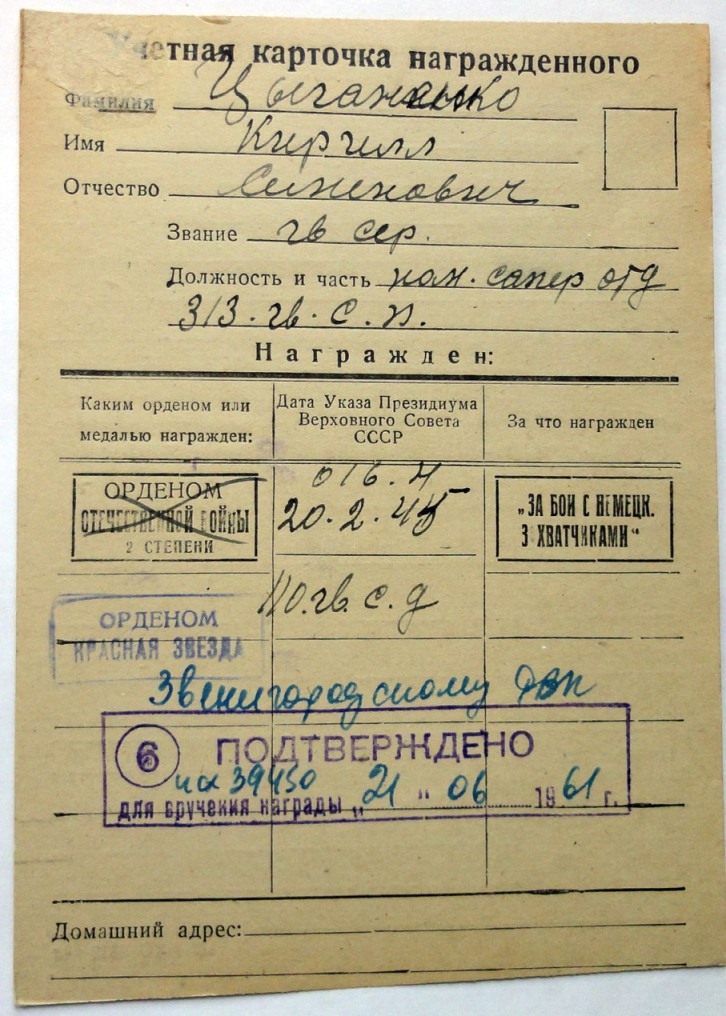 четная карточка награжденного
Фамилия Цыганенко
Имя Кирилл
Отчество Семенович
Звание гв сер.
Должность и часть ком. сапер отд
313. гв. с. п.
Награжден:
Каким орденом или медалью награжден:
Дата Указа Президиума
Верховного Совета
СССР
За что награжден
ОРДЕНОМ
ОТЕЧЕСТВЕННОЙ ВОЙНЫ
2 СТЕПЕНИ
016. н
20. 2. 45
„ЗА БОИ С НЕМЕЦК.
З ХВАТЧИКАМИ“
110. гв. с. д
ОРДЕНОМ
КРАСНАЯ ЗВЕЗДА
Звенигородскому РВК
6 ПОДТВЕРЖДЕНО
исх 39450
для вручения награды „21“ 06 1961 г.
Домашний адрес: